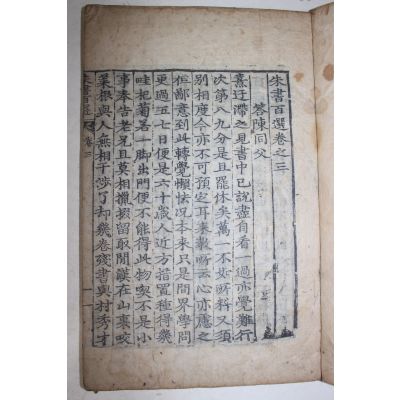 朱書百選卷之三
答陳同父
熹迂滯之見書中已說盡自看一過亦覺難行
次第八九分是且罷休矣萬一不如所料又須
別相度今亦不可預定耳來教所云心亦應之
但鄙意到此轉覺懶怯况本來只是閒界學問
更過五七日便是六十歲人近方措置種得幾
畦杞菊若一脚出門便不能得此物喫不是小
事奉告老兄且莫相攛掇留取閒漢在山裏咬
菜根與人無相干涉了却幾卷殘書與村秀才
朱書百選 卷三 一